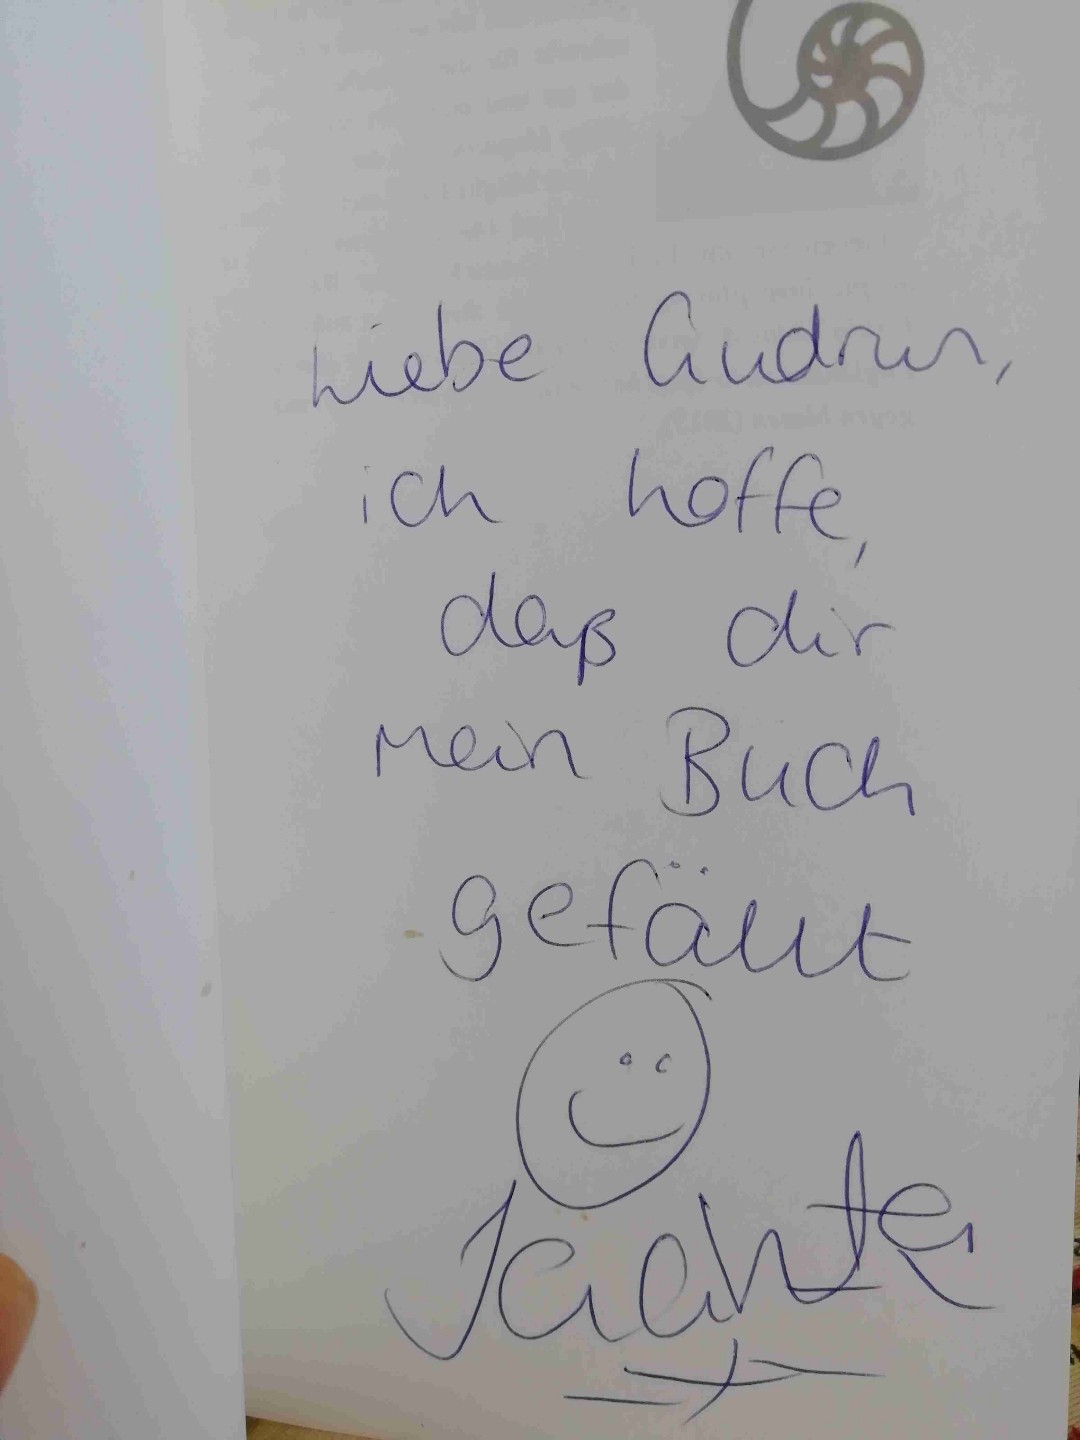 Liebe Gudrun,
ich hoffe,
daß dir
mein Buch
gefällt